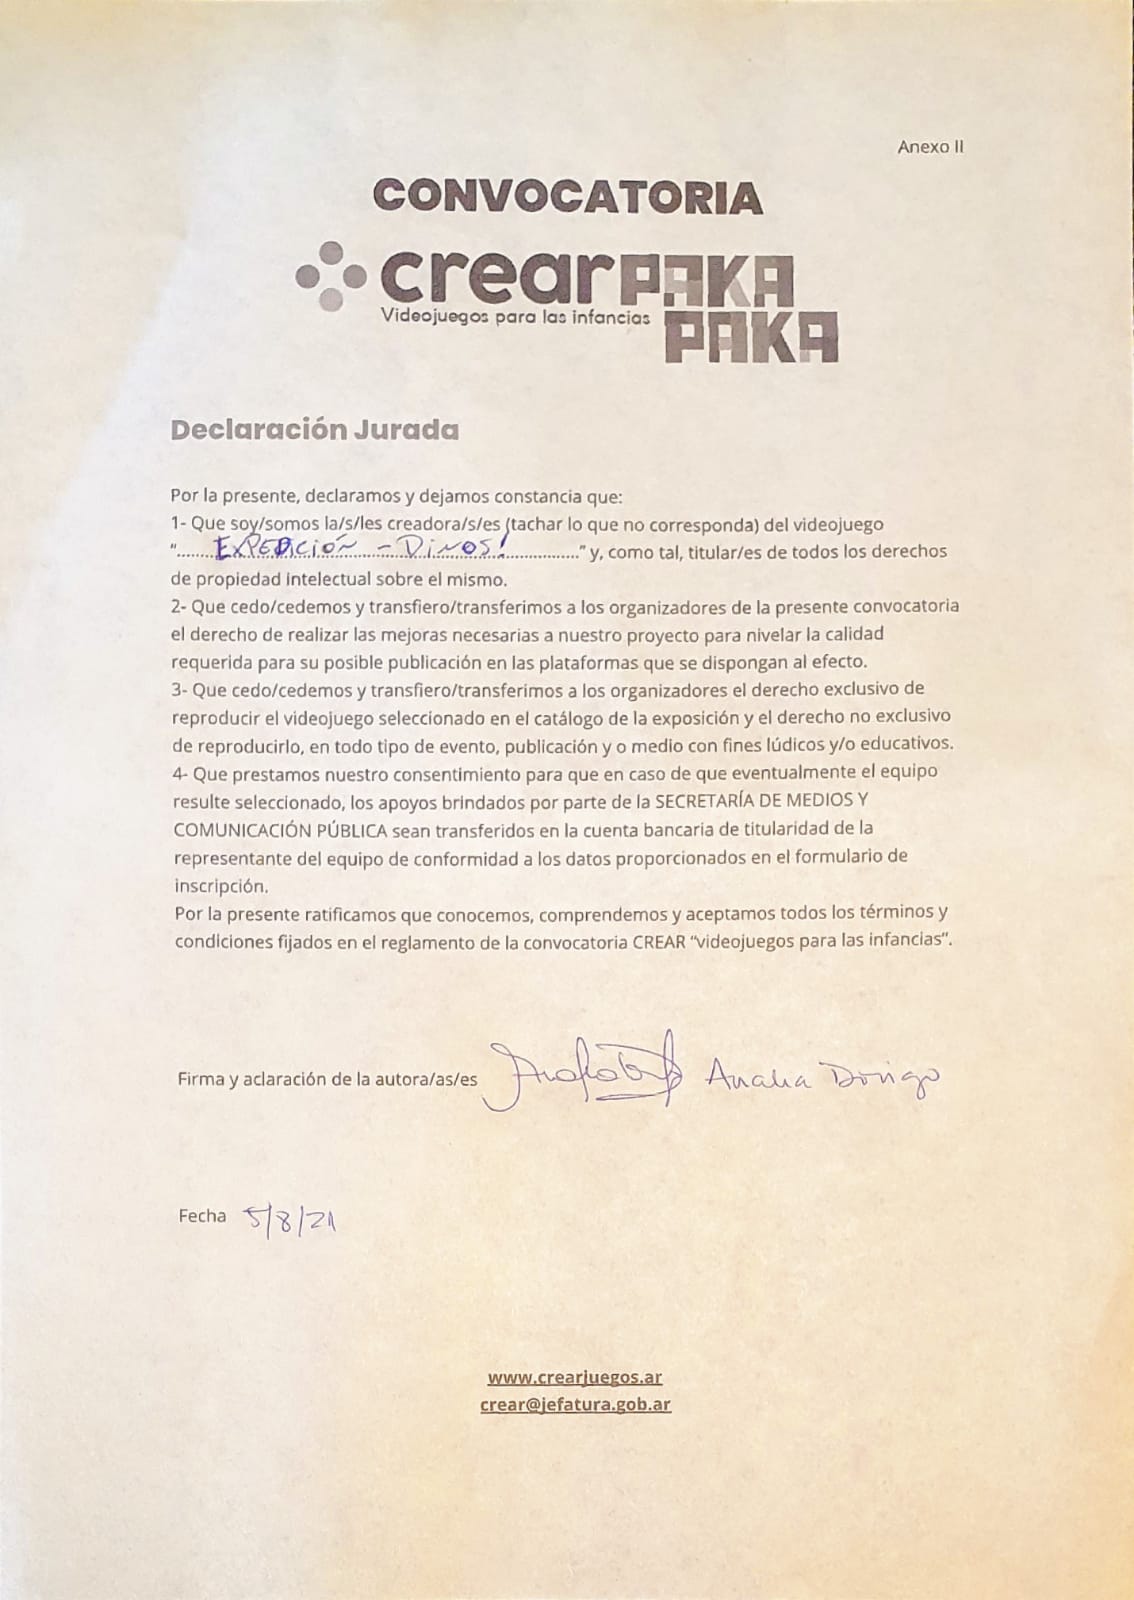 Anexo II
CONVOCATORIA
crear PAKA
Videojuegos para las infancias
PAKA
Declaración Jurada
Por la presente, declaramos y dejamos constancia que:
1- Que soy/somos la/s/les creadora/s/es (tachar lo que no corresponda) del videojuego
“.......EXPEDICIÓN - DINOS!...............” y, como tal, titular/es de todos los derechos
de propiedad intelectual sobre el mismo.
2- Que cedo/cedemos y transfiero/transferimos a los organizadores de la presente convocatoria
el derecho de realizar las mejoras necesarias a nuestro proyecto para nivelar la calidad
requerida para su posible publicación en las plataformas que se dispongan al efecto.
3- Que cedo/cedemos y transfiero/transferimos a los organizadores el derecho exclusivo de
reproducir el videojuego seleccionado en el catálogo de la exposición y el derecho no exclusivo
de reproducirlo, en todo tipo de evento, publicación y o medio con fines lúdicos y/o educativos.
4- Que prestamos nuestro consentimiento para que en caso de que eventualmente el equipo
resulte seleccionado, los apoyos brindados por parte de la SECRETARÍA DE MEDIOS Y
COMUNICACIÓN PÚBLICA sean transferidos en la cuenta bancaria de titularidad de la
representante del equipo de conformidad a los datos proporcionados en el formulario de
inscripción.
Por la presente ratificamos que conocemos, comprendemos y aceptamos todos los términos y
condiciones fijados en el reglamento de la convocatoria CREAR “videojuegos para las infancias”.
Firma y aclaración de la autora/as/es Analia Dorigo
Fecha 5/8/21
www.crearjuegos.ar
crear@jefatura.gob.ar